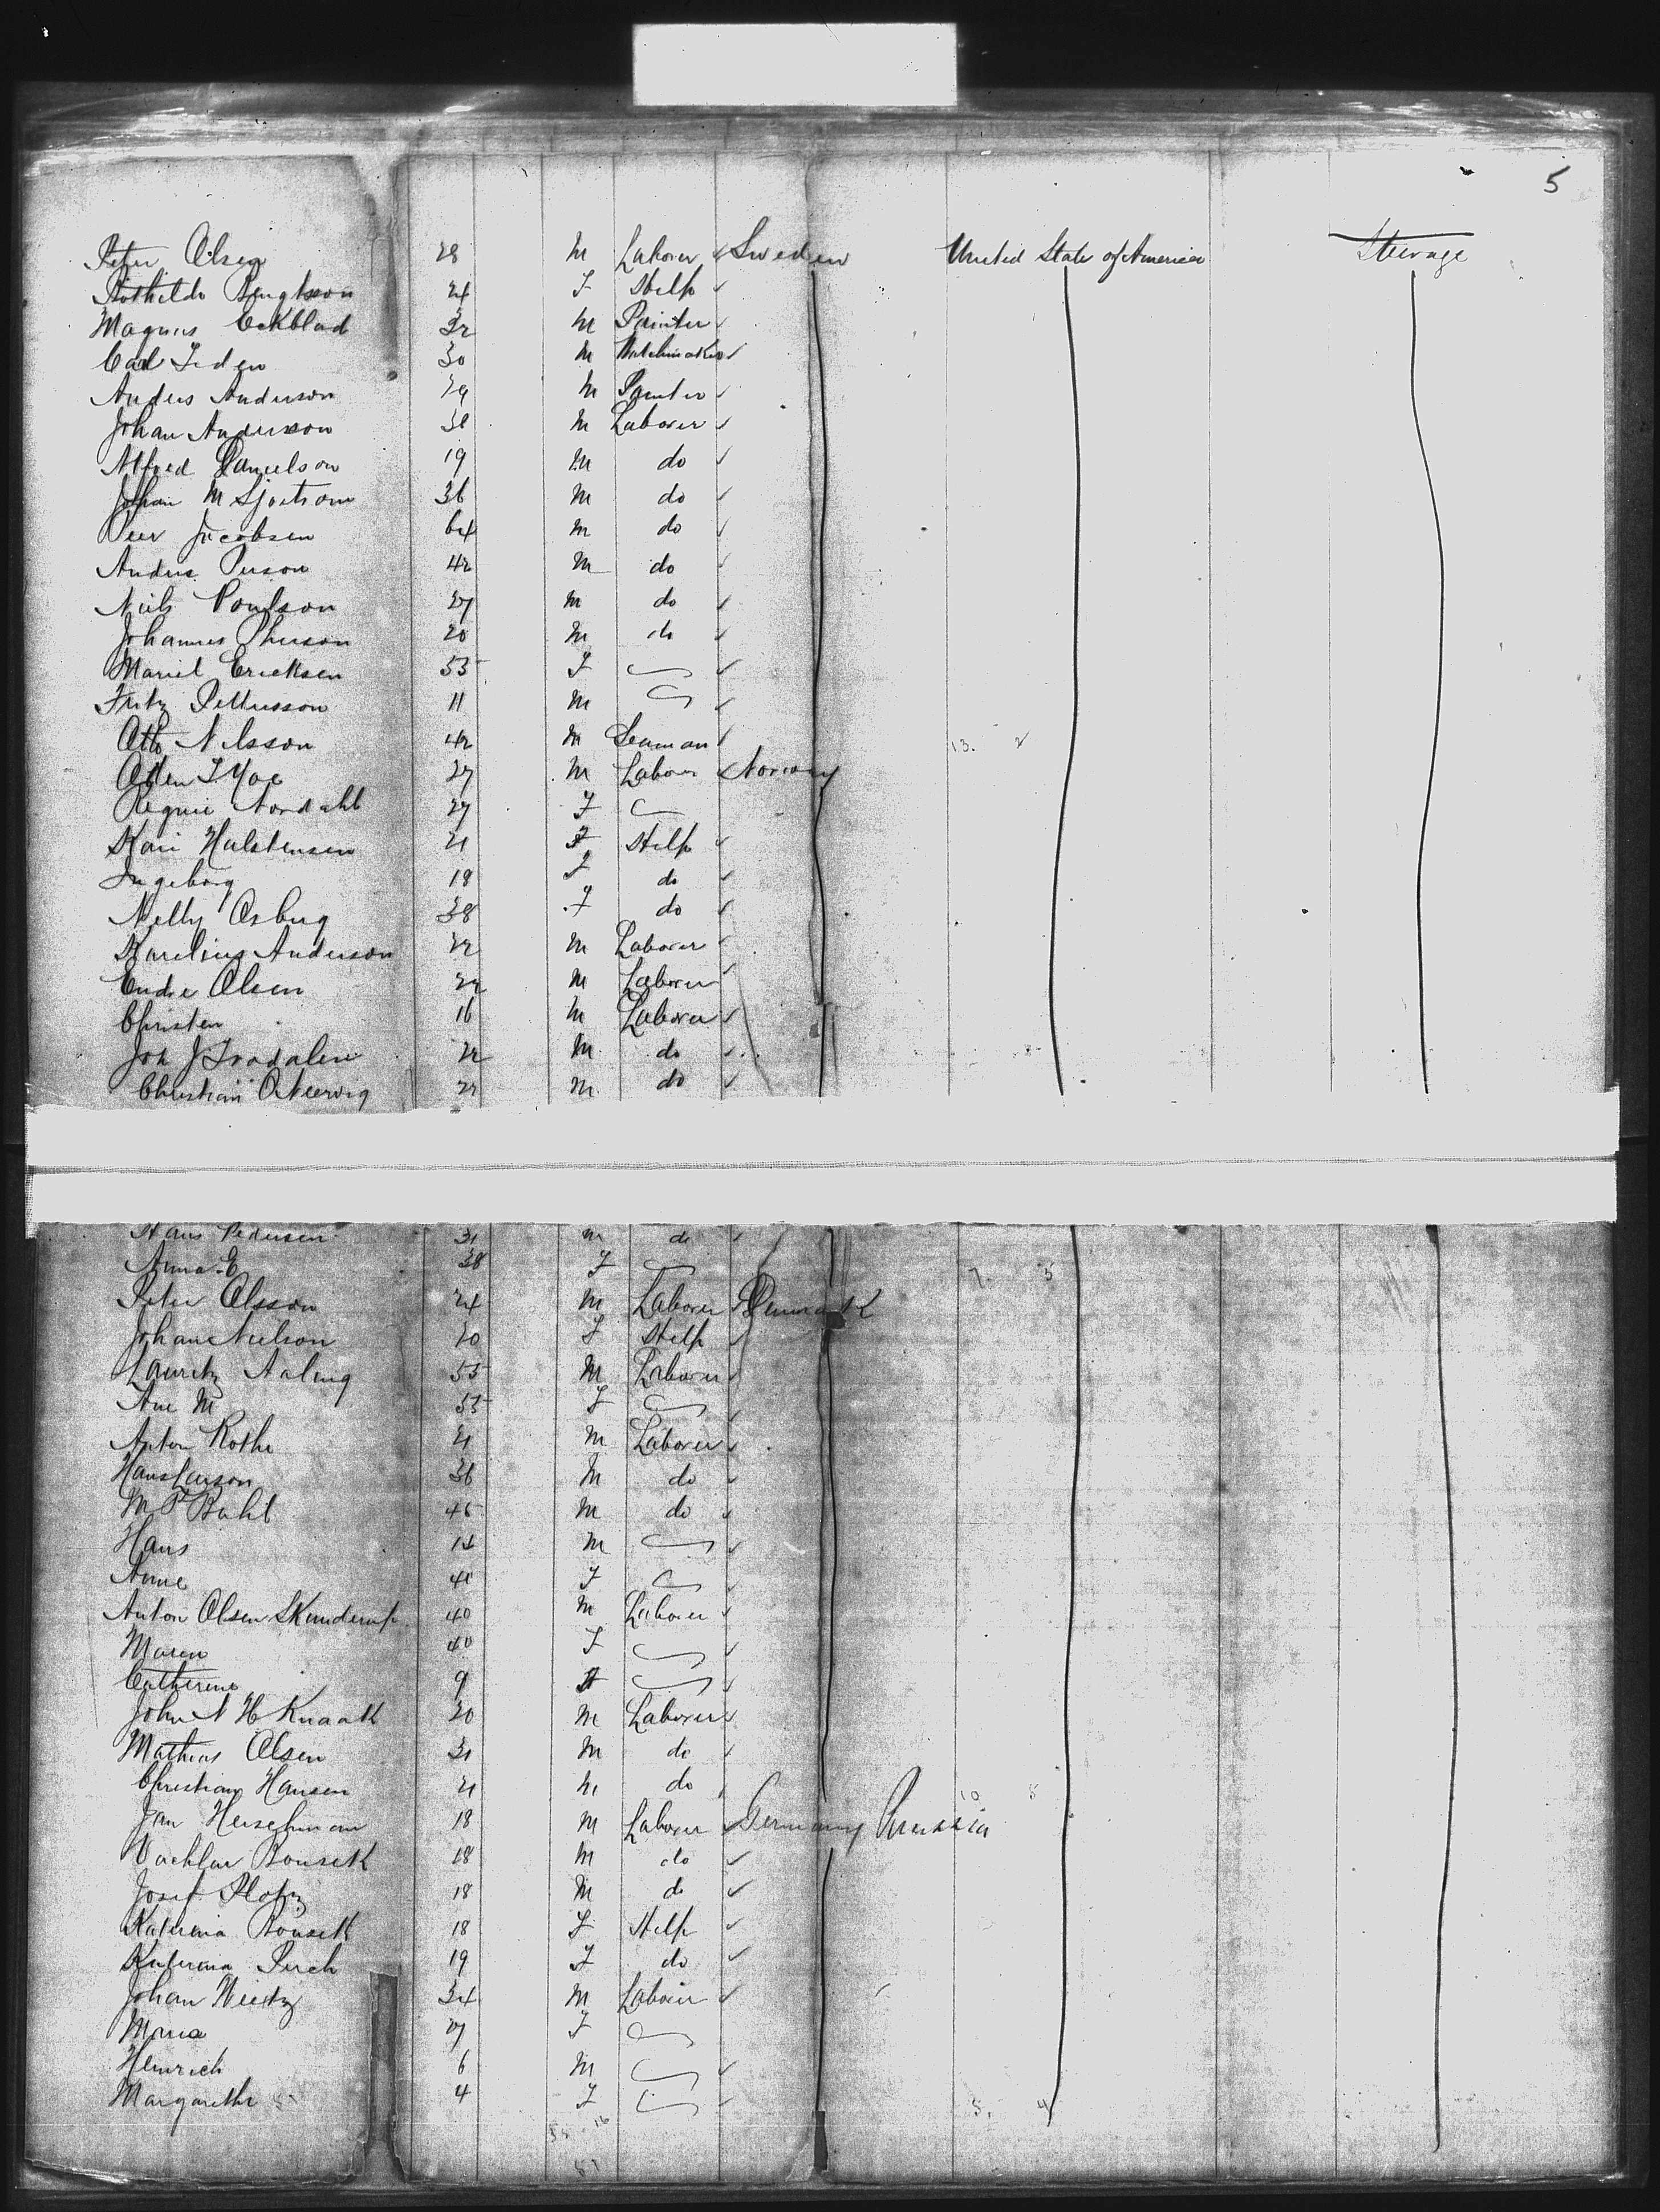 5
Peter Olsen 28 M Laborer ✓ Sweden United State of America Steerage
Bengtsson 24 F Help ✓
Magnus Eckblad 32 M Painter ✓
Carl Iden 30 M Watchmaker ✓
Anders Anderson 29 M Painter ✓
Johan Anderson M Laborer ✓
Alfred Danielson 19 M do ✓
Johan M Sjostrom 36 M do ✓
Peer Jacobsen 64 M do ✓
Anders Person 42 M do ✓
Niels Poulson 27 M do ✓
Johannes 20 M do ✓
Ericksen 55 F ✓
Fritz Pettersson 11 M ✓
Otto Nilsson 42 M Seaman ✓ 13. 2
27 M Labour Norway
Nordahl 27 F
Kari Halstensen 21 F Help ✓
Ingeborg 18 F do ✓
Nelly 38 F do ✓
Karelius Anderson 22 M Laborer ✓
Endre Olsen 22 M Laborer
Christen 16 M Laborer ✓
Joh 22 M do ✓
Christian 22 M do ✓
Hans Pedersen 31 M do ✓
Anna E 38 F 7. 5
Peter Olsson 24 M Laborer Denmark
Johane Nielson 20 F Help ✓
Lauritz Aaling 55 M Laborer ✓
Ane M 55 F ✓
Anton Rothe 21 M Laborer ✓
Hans Larson 36 M do ✓
M P Buhl 45 M do ✓
Hans M ✓
Anne 41 F ✓
Anton Olsen Skunderup 40 M Laborer ✓
Maren 40 F ✓
Catherine 9 ✓
John N H Knaak 20 M Laborer ✓
Mathias Olsen 31 M do ✓
Christian Hansen 21 M do 10 5
Jan Herschman 18 M Laborer Germany Prussia
Bousek 18 M do ✓
Josef 18 M do ✓
Katerina Bousek 18 F Help ✓
Katerina Perch 19 F do ✓
Johan 34 M Laborer ✓
Maria 27 F
Heinrich 6 M ✓
Margarethe 4 F ✓ 5. 4